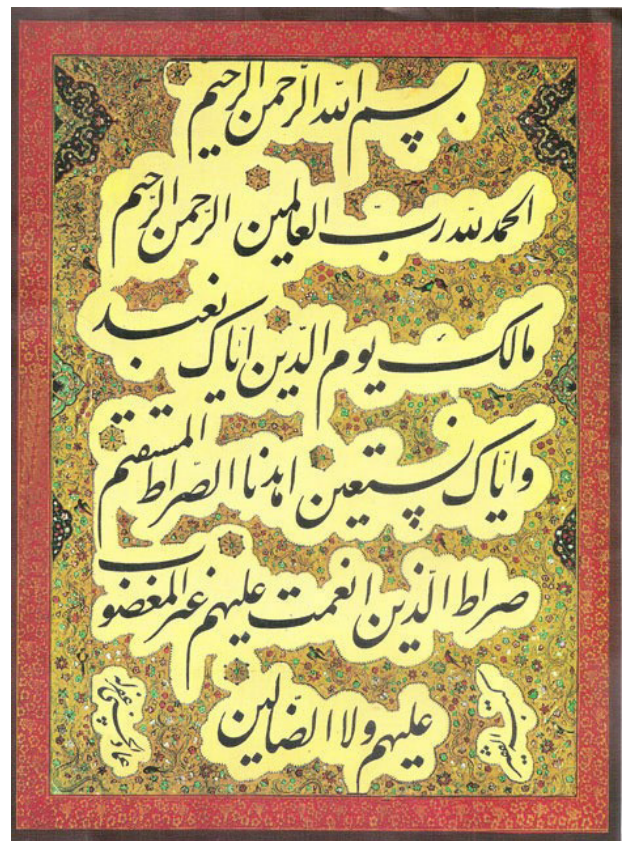 بسم الله الرّحمن الرحیم
الحمد لله ربّ العالمین الرّحمن الرّحیم
مالک یوم الدّین ایّاک نعبد
و ایّاک نستعین اهدنا الصّراط المستقیم
صراط الّذین انعمت علیهم غیر المغضوب
علیهم ولا الضّالین